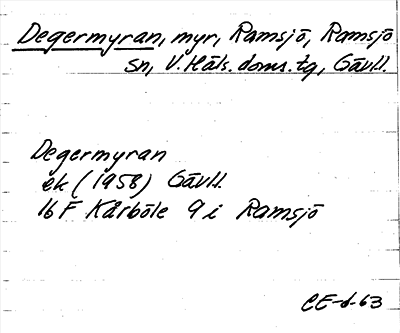 Degermyran, myr, Ramsjö, Ramsjö
sn, V. Häls. doms. tg, Gävll.
Degermyran
ek (1958) Gävll.
16 F Kårböle 9 i Ramsjö
CE-d-63